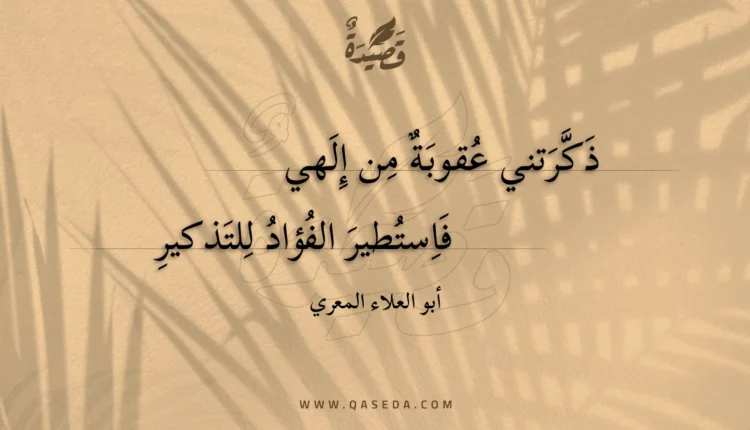 قَصِيْدَةٌ
ذَكَّرَتني عُقوبَةٌ مِن إِلَهي
فَاِستُطيرَ الفُؤادُ لِلتَذكيرِ
أبو العلاء المعري
WWW.QASEDA.COM